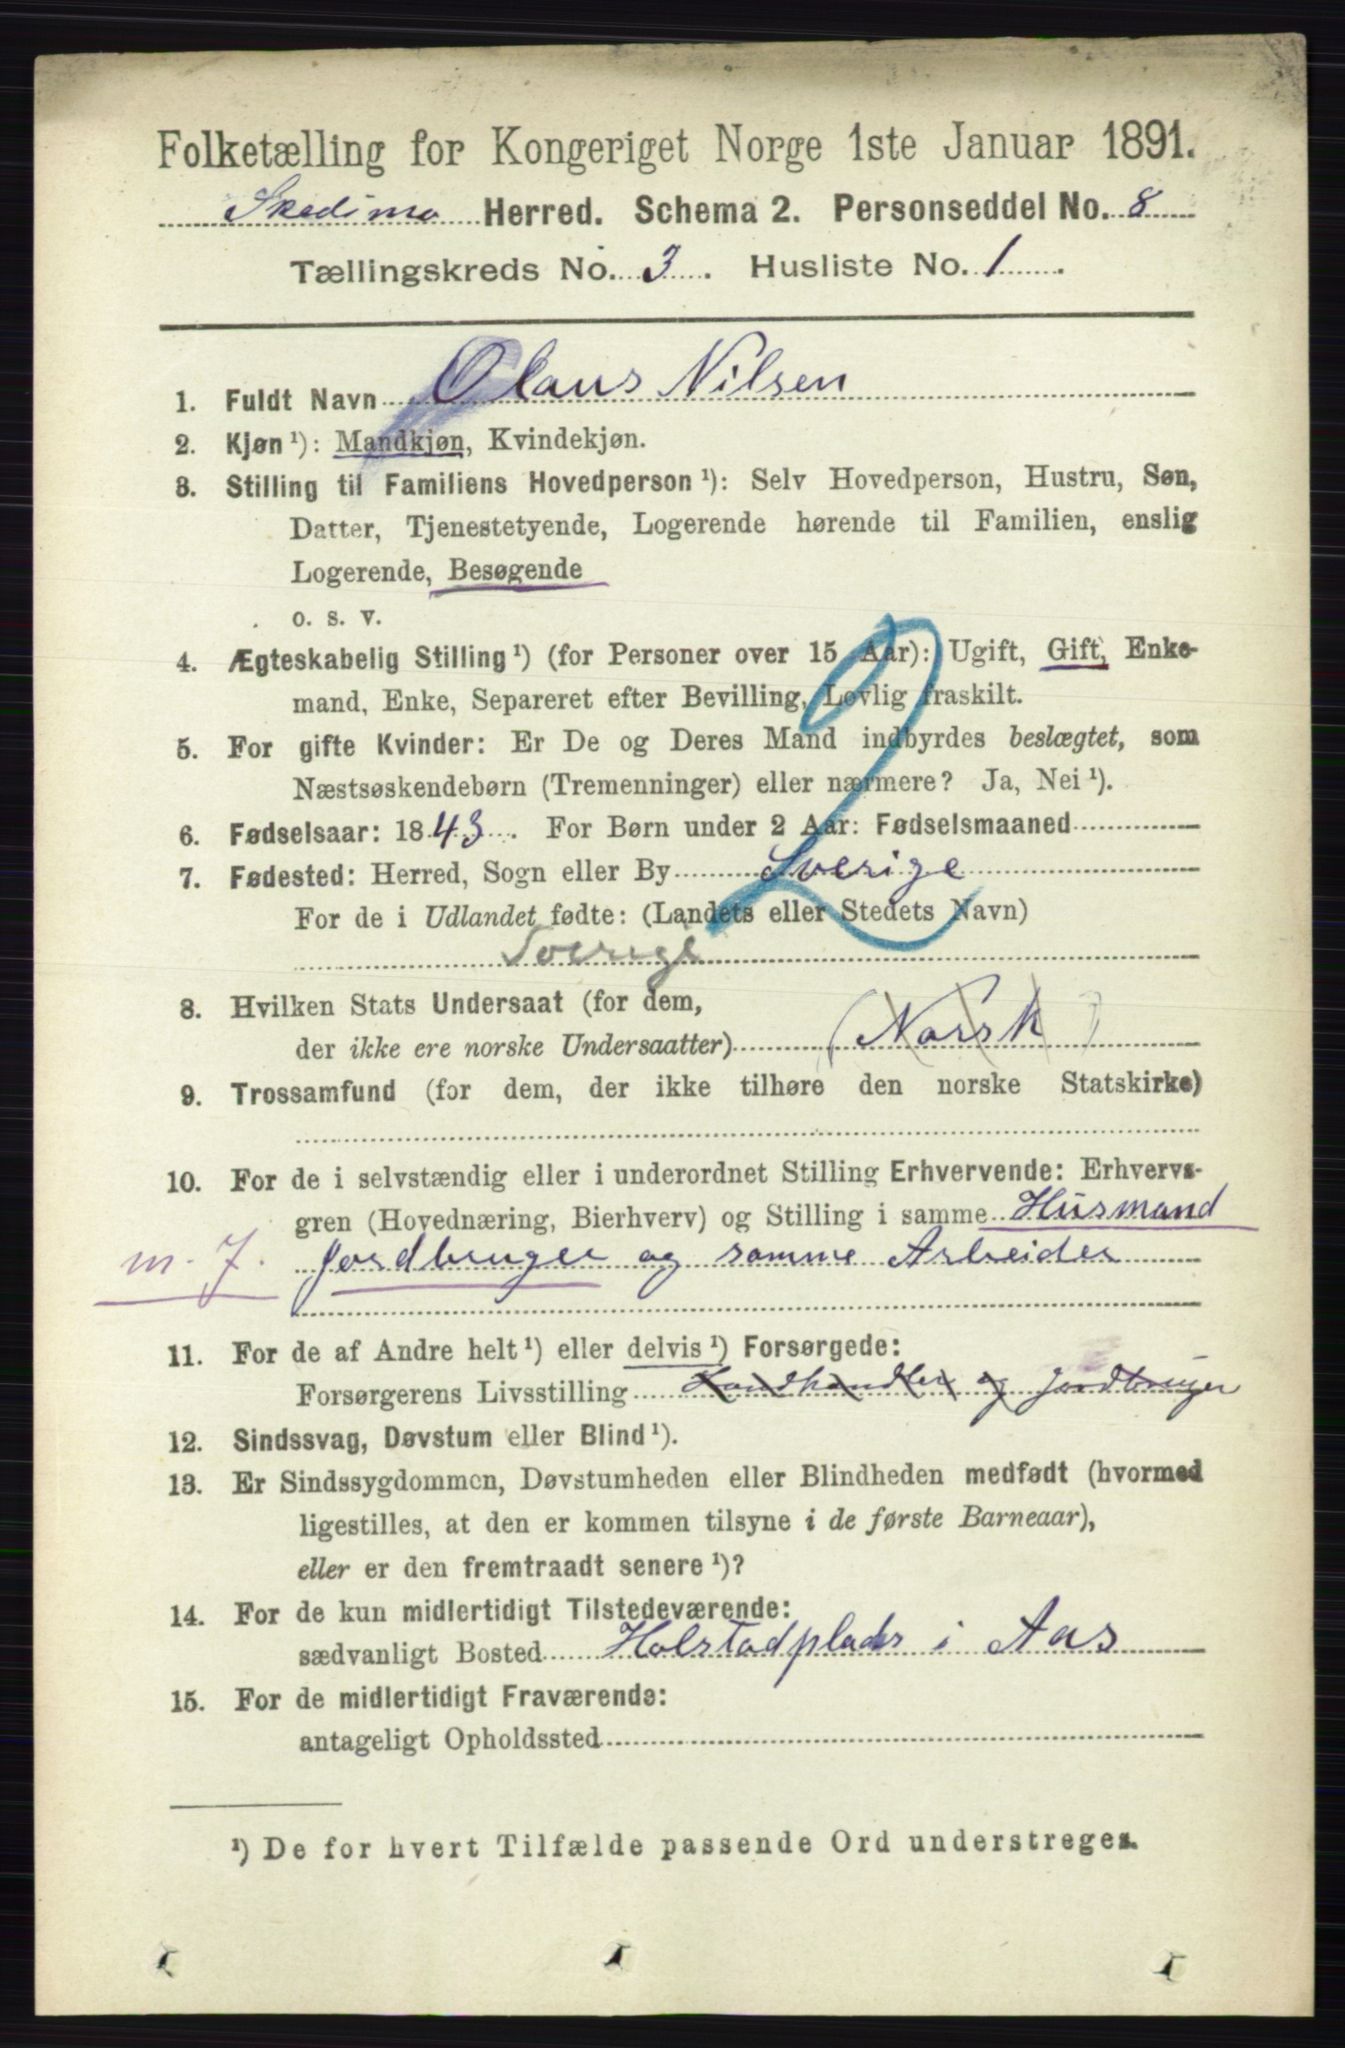 Folketælling for Kongeriget Norge 1ste Januar 1891.
Skedsmo Herred. Schema 2. Personseddel No. 8
Tællingskreds No. 3. Husliste No. 1.
1. Fuldt Navn Olaus Nilsen
2. Kjøn ¹): Mandkjøn, Kvindekjøn.
3. Stilling til Familiens Hovedperson ¹): Selv Hovedperson, Hustru, Søn,
Datter, Tjenestetyende, Logerende hørende til Familien, enslig
Logerende, Besøgende
o. s. v.
4. Ægteskabelig Stilling ¹) (for Personer over 15 Aar): Ugift, Gift, Enke-
mand, Enke, Separeret efter Bevilling, Lovlig fraskilt.
2
5. For gifte Kvinder: Er De og Deres Mand indbyrdes beslægtet, som
Næstsøskendebørn (Tremenninger) eller nærmere? Ja, Nei ¹).
6. Fødselsaar: 1843. For Børn under 2 Aar: Fødselsmaaned
7. Fødested: Herred, Sogn eller By Sverige
For de i Udlandet fødte: (Landets eller Stedets Navn)
Sverige
8. Hvilken Stats Undersaat (for dem,
der ikke ere norske Undersaatter) (Norsk)
9. Trossamfund (for dem, der ikke tilhøre den norske Statskirke)
10. For de i selvstændig eller i underordnet Stilling Erhvervende: Erhvervs-
gren (Hovednæring, Bierhverv) og Stilling i samme Husmand
m. J. Jordbruger og somme Arbeider
11. For de af Andre helt ¹) eller delvis ¹) Forsørgede:
Forsørgerens Livsstilling Landhandler og Jordbruger
12. Sindssvag, Døvstum eller Blind ¹).
13. Er Sindssygdommen, Døvstumheden eller Blindheden medfødt (hvormed
ligestilles, at den er kommen tilsyne i de første Barneaar),
eller er den fremtraadt senere ¹)?
14. For de kun midlertidigt Tilstedeværende:
sædvanligt Bosted Holstadplads i Aas
15. For de midlertidigt Fraværende:
antageligt Opholdssted
¹) De for hvert Tilfælde passende Ord understreges.